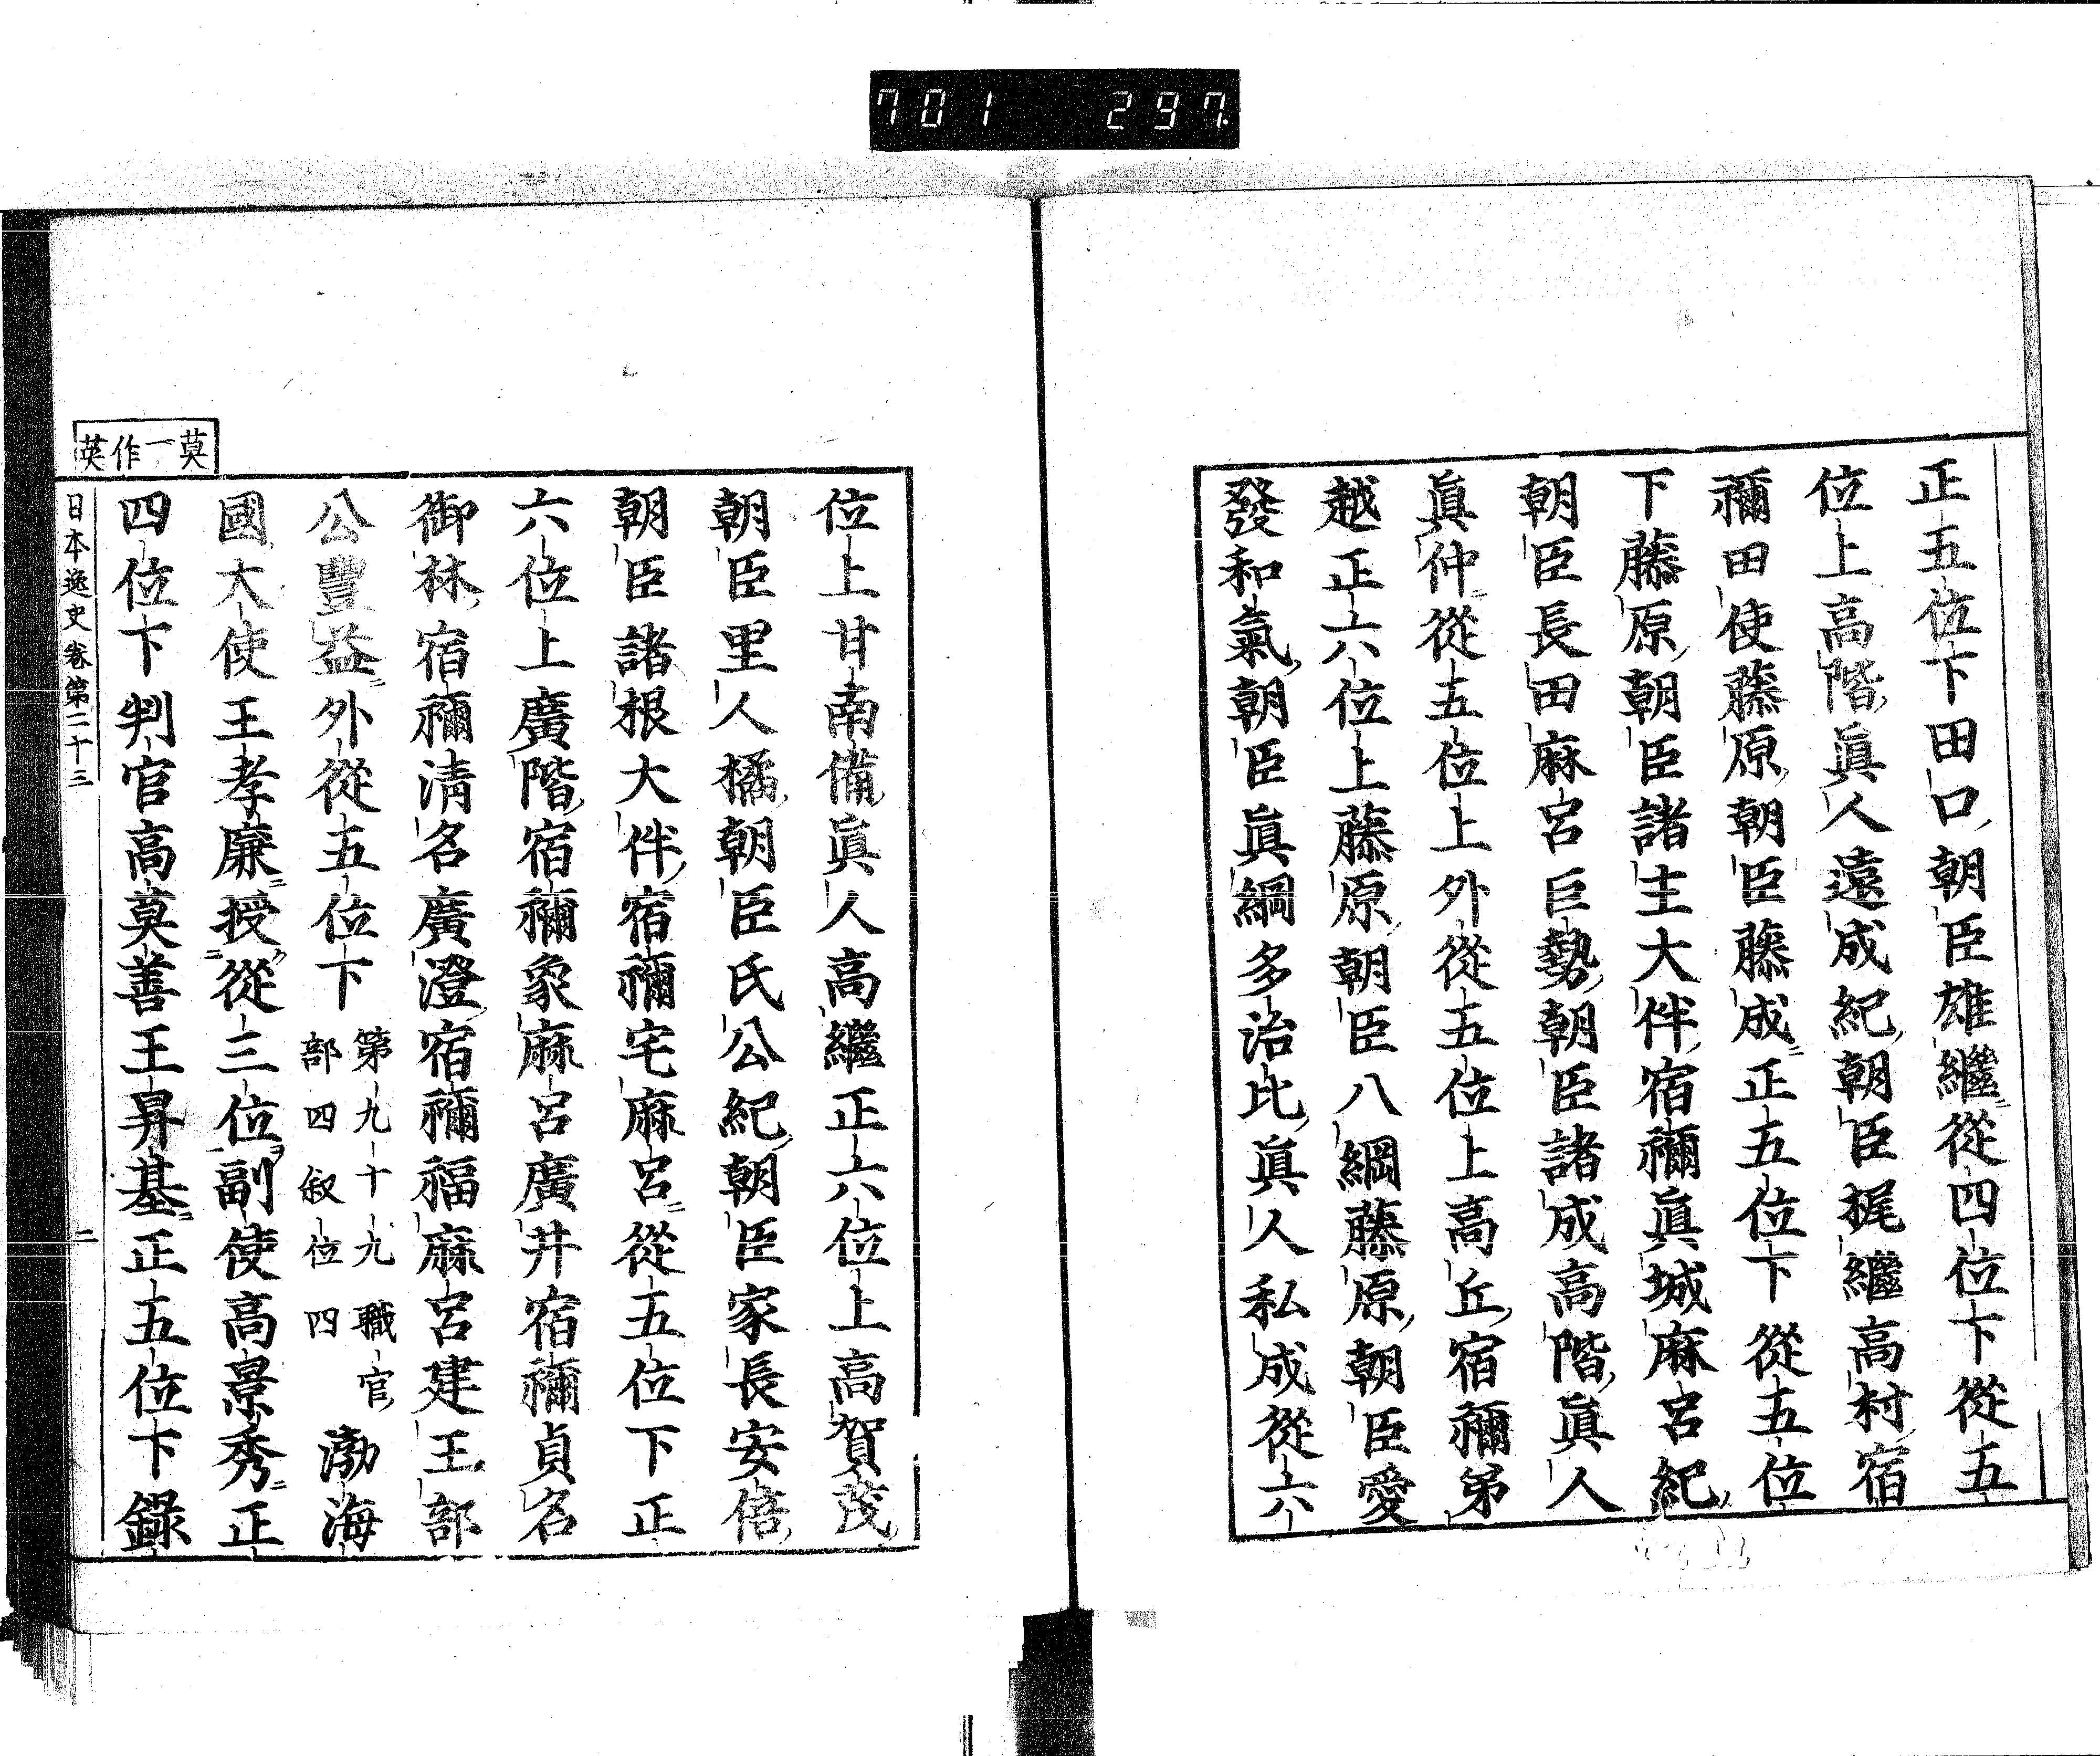 701 297
正五位下田口朝臣雄繼從四位下從五
位上高階眞人遠成紀朝臣梶繼高村宿
禰田使藤原朝臣藤成正五位下從五位
下藤原朝臣諸主大伴宿禰眞城麻呂紀
朝臣長田麻呂巨勢朝臣諸成高階眞人
眞仲從五位上外從五位上高丘宿禰弟
越正六位上藤原朝臣八綱藤原朝臣愛
發和氣朝臣眞綱多治比眞人私成從六
位上甘南備眞人高繼正六位上高賀茂
朝臣里人橘朝臣氏公紀朝臣家長安倍
朝臣諸根大伴宿禰宅麻呂從五位下正
六位上廣階宿禰象麻呂廣井宿禰貞名
御林宿禰淸名廣澄宿禰福麻呂建王部
公豐益外從五位下
第九十九職官
部四叙位四
渤海
國大使王孝廉授從三位副使高景秀正
四位下判官高莫善王昇基正五位下錄
莫一作英
日本逸史卷第二十三
二